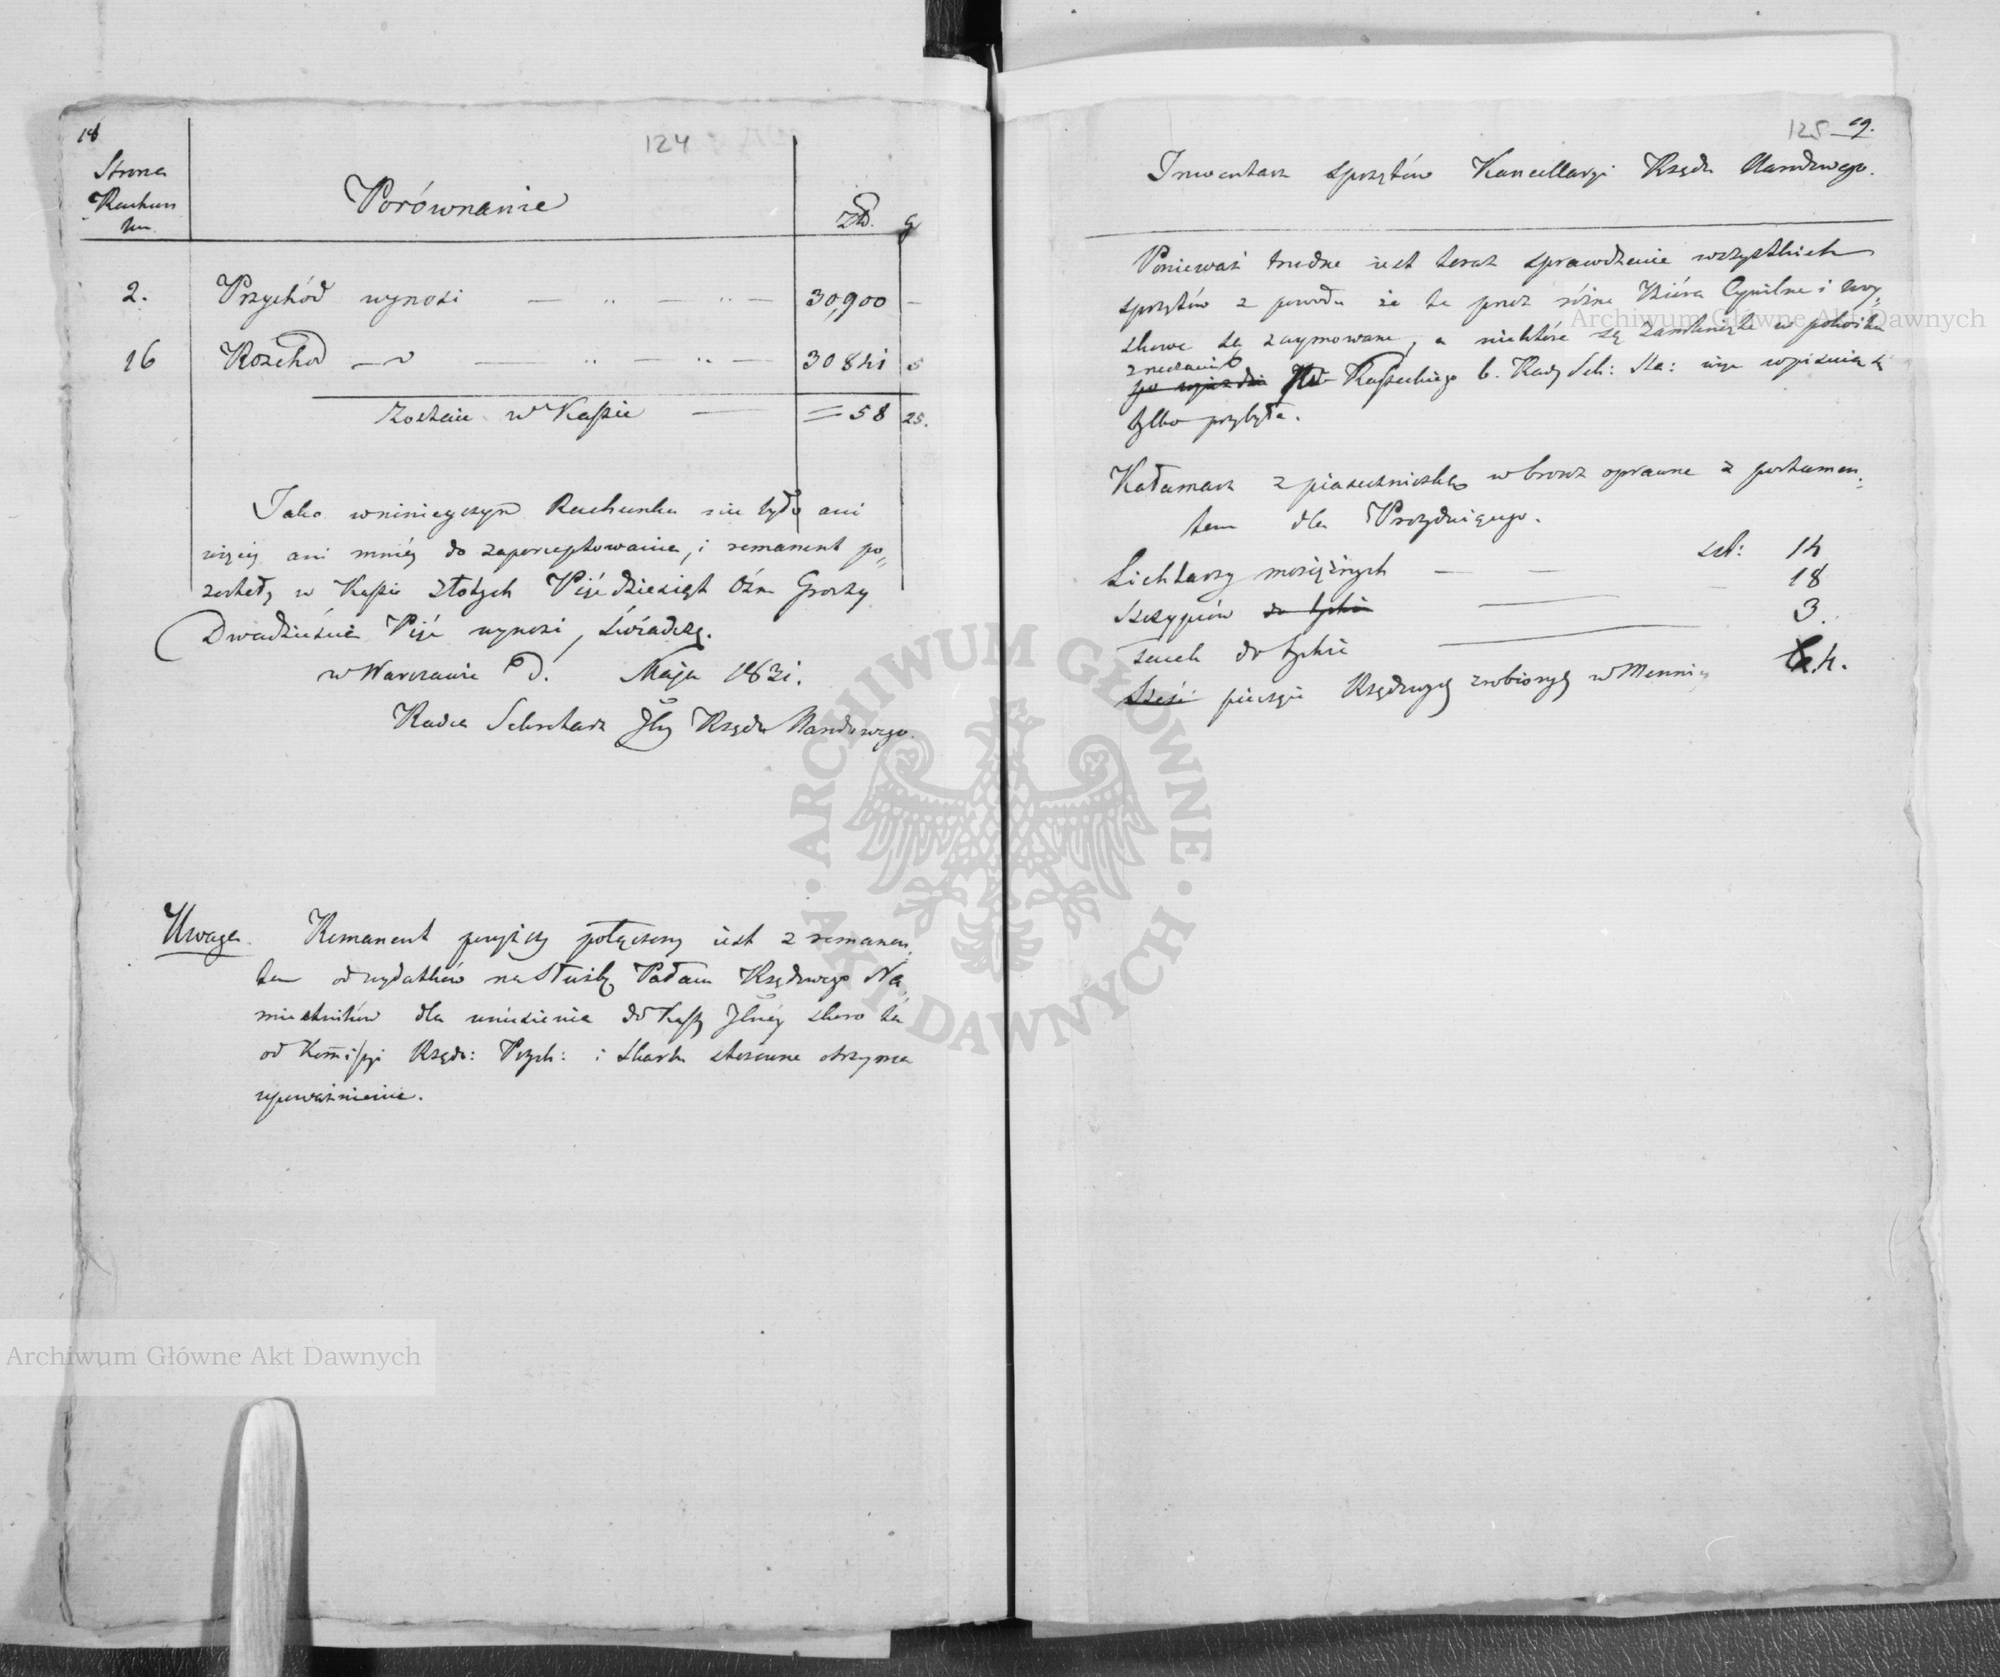 18
124
Strona
Rachun
ku
Porównanie
Złp.
g
2. Przychód wynosi — „ — „ — 30,900 —
16 Rozchód — „ — „ — „ — 30841 5
Zostaie w Kassie — = 58 25.
Jako w ninieyszym Rachunku nie było ani
więcéy ani mniéy do zaperceptowania, i remanent po„
zostały w Kassie złotych Pięćdziesiąt Ośm Groszy
Dwadzieścia Pięć wynosi, świadczę.
w Warszawie d. Maja 1831.
Radca Sekretarz Jlny Rządu Narodowego.
Uwaga. Remanent powyższy połączony iest z remanen„
tem od wydatków na Służbę Pałacu Rządowego Na„
miestników dla wniesienia do Kassy Jlnéy skoro ta
od Kommissyi Rządo: Przych: i Skarbu stosowne otrzyma
upoważnienie.
125 19.
Inwentarz sprzętów Kancellaryi Rządu Narodowego.
Ponieważ trudne iest teraz sprawdzenie wszystkich
sprzętów z powodu że te przez różne Biura Cywilne i woy„
skowe są zaymowane, a niektóre są zamknięte w pokoiku
po wyieździe Kosseckiego b. Radcy Sek: Sta: więc wpisuią się
tylko przybyłe.
Kałamarz z piaseczniczką w bronz oprawne z postumen„
tem dla Prezyduiącego.
Lichtarzy mosiężnych — — szt: 14
Szczypców do tychże — — 18
Tacek do tychże — 3.
Sześć pieczęci Rządowych zrobionych w Mennicy 4.
ARCHIWUM GŁÓWNE · AKT DAWNYCH ·
Archiwum Główne Akt Dawnych
Archiwum Główne Akt Dawnych